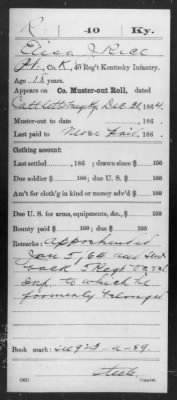 R | 40 | Ky.
Elisa J Rice
Pt., Co. K, 40 Reg't Kentucky Infantry.
Age 18 years.
Appears on Co. Muster-out Roll, dated
Catlettsburg Ky Dec 30, 1864.
Muster-out to date , 186 .
Last paid to never paid, 186 .
Clothing account:
Last settled , 186 ; drawn since $ 100
Due soldier $ 100 ; due U. S. $ 100
Am't for cloth'g in kind or money adv'd $ 100
Due U. S. for arms, equipments, &c., $ 100
Bounty paid $ 100 ; due $ 100
Remarks: Apprehended
Jan 5, 64 and sent
back 5 Regt Va Vol
Inf. to which he
formerly belonged
Book mark: a-89.